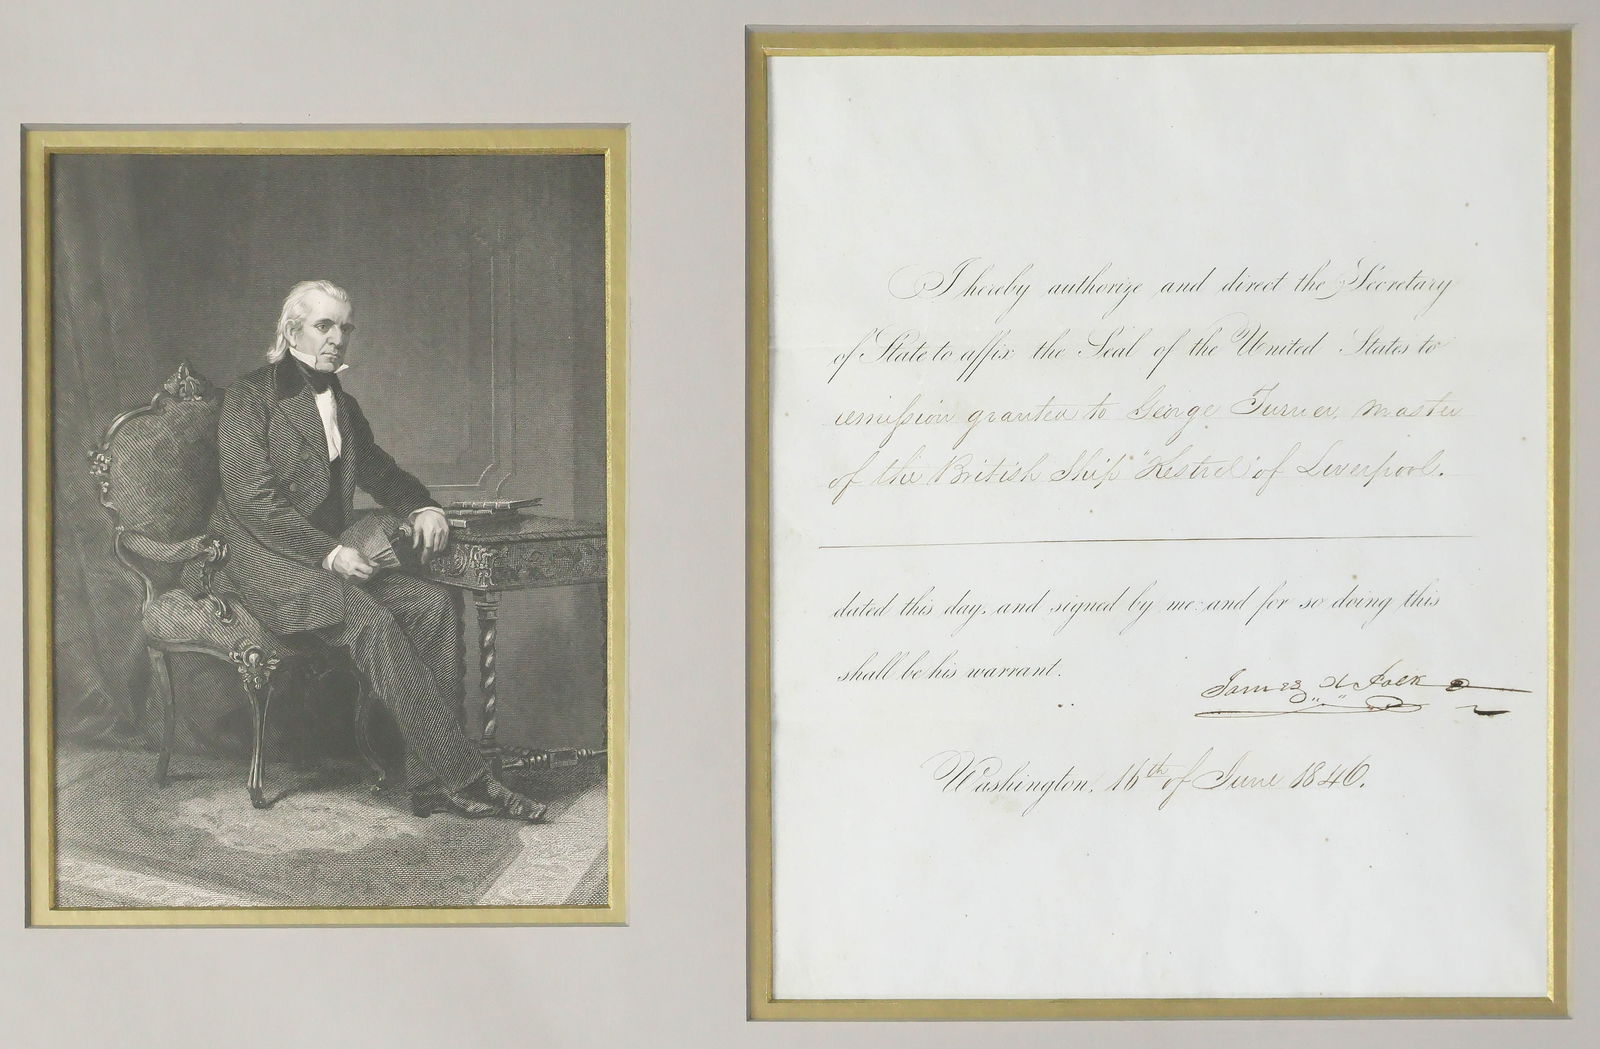 I hereby authorize and direct the Secretary
of State to affix the Seal of the United States to
remission granted to George Turner, master
of the British Ship "Kestrel" of Liverpool.
dated this day, and signed by me: and for so doing this
shall be his warrant.
James K Polk
Washington, 16th of June 1846.